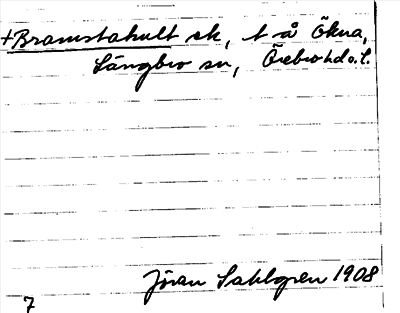 +Bramstahult sk, t å Ökna,
Längbro sn, Örebro hd o. l.
Jöran Sahlgren 1908
7